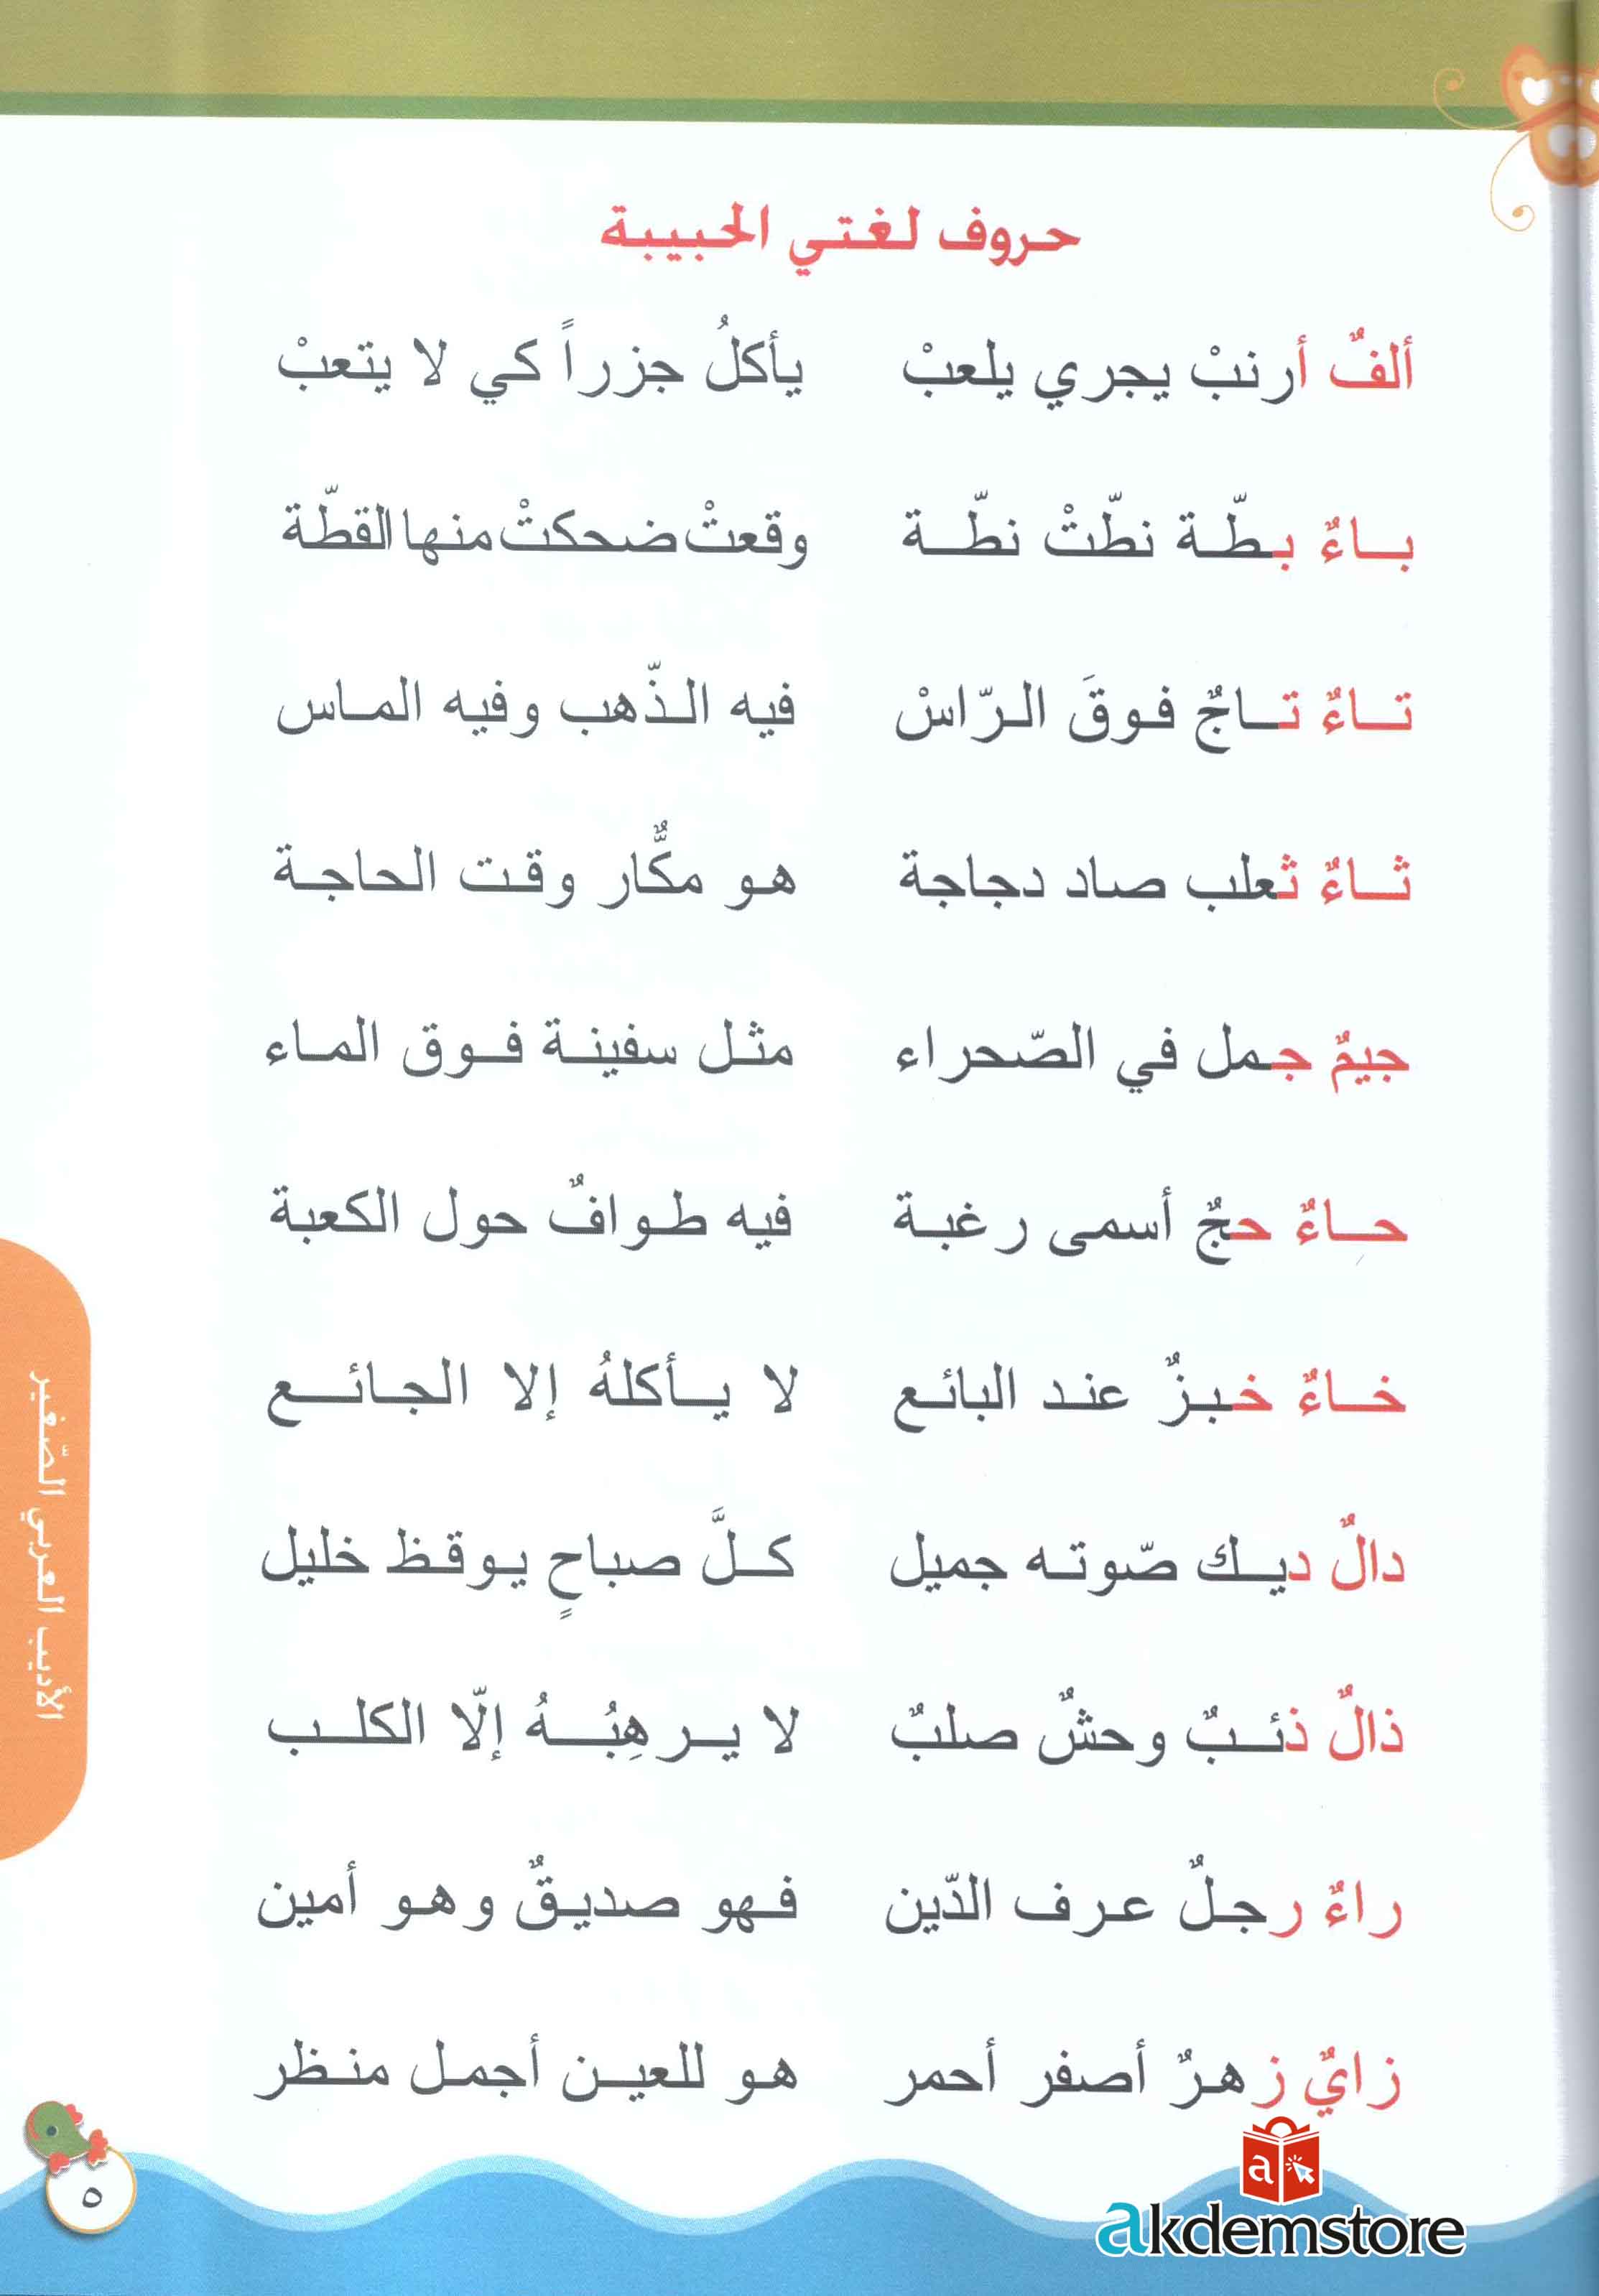 حروف لغتي الحبيبة
ألفٌ أرنبْ يجري يلعبْ يأكلُ جزراً كي لا يتعبْ
باءٌ بطّة نطّتْ نطّة وقعتْ ضحكتْ منها القطّة
تاءٌ تاجٌ فوقَ الرّاسْ فيه الذّهب وفيه الماس
ثاءٌ ثعلب صاد دجاجة هو مكٌّار وقت الحاجة
جيمٌ جمل في الصّحراء مثل سفينة فوق الماء
حاءٌ حجٌ أسمى رغبة فيه طوافٌ حول الكعبة
خاءٌ خبزٌ عند البائع لا يأكلهُ إلا الجائع
دالٌ ديك صّوته جميل كلَّ صباحٍ يوقظ خليل
ذالٌ ذئبٌ وحشٌ صلبٌ لا يرهِبُهُ إلّا الكلب
راءٌ رجلٌ عرف الدّين فهو صديقٌ وهو أمين
زايٌ زهرٌ أصفر أحمر هو للعين أجمل منظر
الأديب العربي الصّغير
٥
a
akdemstore